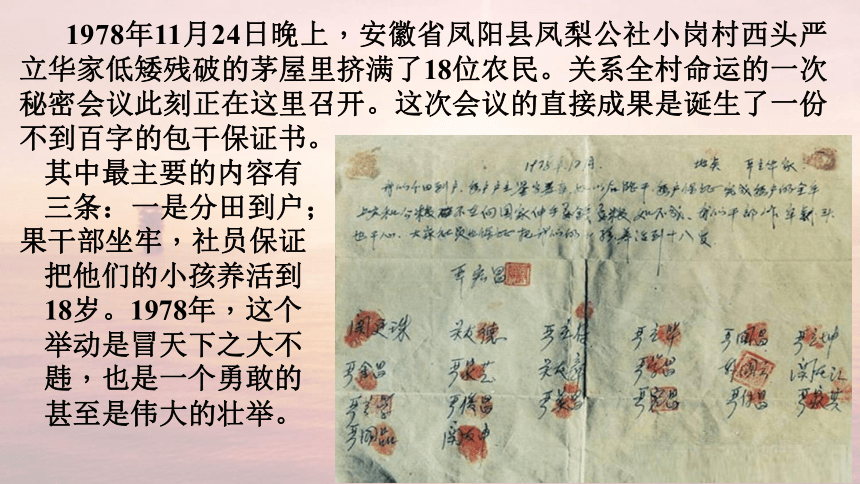 1978年11月24日晚上，安徽省凤阳县凤梨公社小岗村西头严
立华家低矮残破的茅屋里挤满了18位农民。关系全村命运的一次
秘密会议此刻正在这里召开。这次会议的直接成果是诞生了一份
不到百字的包干保证书。
其中最主要的内容有
三条：一是分田到户；
果干部坐牢，社员保证
把他们的小孩养活到
18岁。1978年，这个
举动是冒天下之大不
韪，也是一个勇敢的
甚至是伟大的壮举。
1978年12月. 地点 严立华家
我们分田到户,每户户主签字盖章,如以后能干,每户保证完成每户的全年
上交和公粮,不在向国家伸手要钱要粮,如不成,我们干部作牢刹头
也干心,大家社员也保证把我们的小孩养活到十八岁.
严宏昌
关廷珠 关友德 严立符 严立华 严国昌 严立坤
严金昌 严家芝 关友章 严学昌 韩国云 关友江
严立学 严俊昌 严美昌 严宏昌 严付昌 严家其
严国品 关友申